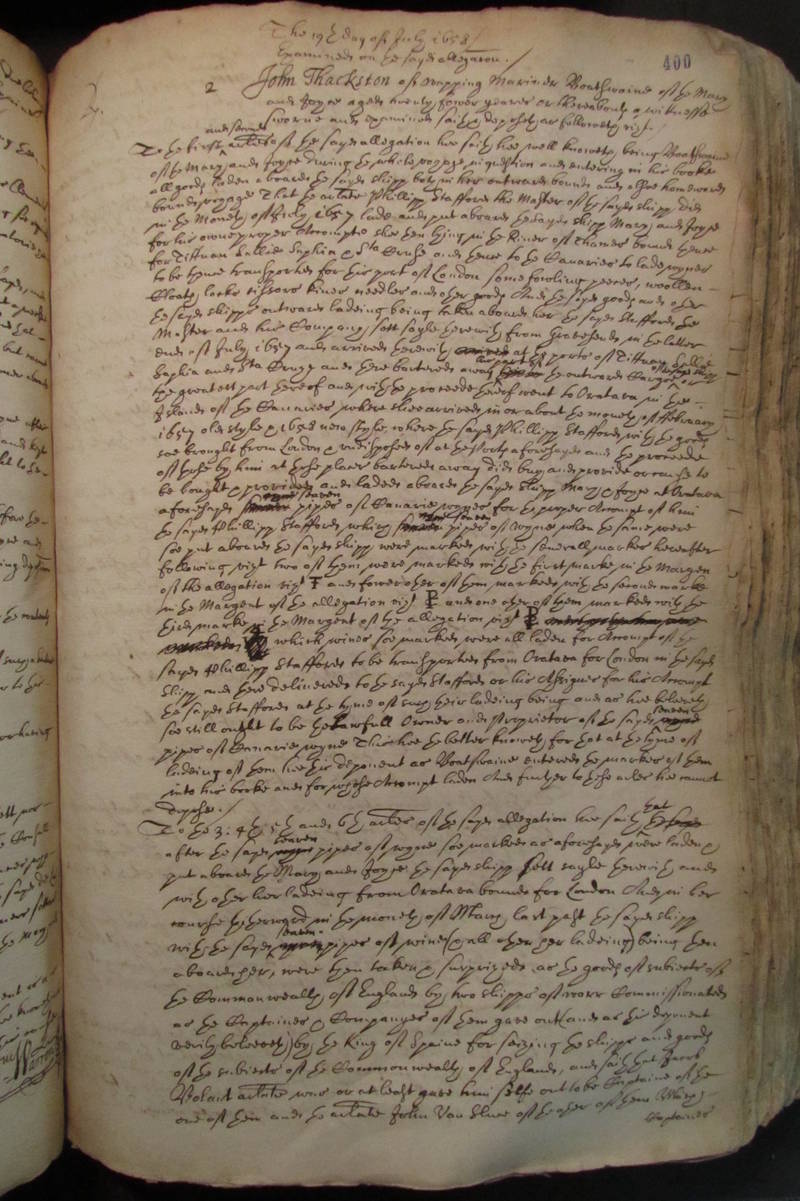 The 19th day of July 1658 /
Examined on the sayd allegation. /
400
2
John Thackston of Wapping Mariner Boatswaine of the Mary
and Joyce aged twenty fower yeares or thereabouts a witnesse
sworne and examined saith and deposeth as followeth vizt.
and second
To the first article of the sayd allegation hee saith hee well knoweth being Boatswaine
of the Mary and Joyce during the whole voyage in question and entering in his booke
all goods laden aboard the sayd shipp both in her outwards bound and alsoe homewards
bound voyage That the arlate Phillipp Stafford the Master of the sayd shipp did
in the Moneth of July 1657 lade and put aboard the sayd shipp Mary and Joyce
for his owne proper Accompte shee then lying in the River of Thames bound thence
for Tittuan Sallie Saphia & Sta Cruse and thence to the Canaries to lade wynes
to be thence transported for his port of London some fowling peeces, woollen
Cloath, locks rissors knives needles and other goods And the sayd goods and other
the sayd shipps outward ladeing being taken aboard her the sayd Stafford the
Master and his Company sett sayle therewith from Gravesend in the latter
end of July 1657 and arrived therewith at the ports of Tittuan Sallie
Saphia and Sta Cruze and there bartered away the outwards Cargoe or
the greatest part thereof and with the proceede thereof went to Oratava in the
Islands of the Canaries where shee arrived in or about the moneth of February
1657 old style & 1658 new style, where the sayd Phillipp Stafford with the goods
soe brought from London & undisposed of at the ports aforesayd and the proceede
of those by him at those places bartered away did buy and provide or cause to
be bought & provided and laded aboard the sayd shipp Mary & Joyce at Oratava
aforesayd seaven pipes of Canarie wynes for the proper Accompt of him
the sayd Phillipp Stafford which seaven pipes of wynes when the same were
soe put aboard the sayd shipp were marked with the severall markes hereafter
following vizt two of them were marked with the first marke in the Margen
of the allegation vizt and fower other of them marked with the second marke
in the Margent of the allegation vizt and one other of them marked with the
third marke in the Margent of the allegation vizt
which wines soe marked were all laden for Accompt of the
sayd Phillipp Stafford to be transported from Oratava for London in the sayd
shipp and there delivered to the sayd Stafford or his Assignes for his Accompt
the sayd Stafford at the tyme of such their ladeing being and as hee beleiveth
soe still ought to be the Lawfull Owner and Proprietor of the sayd seaven
pipes of Canarie wyne This hee the better knoweth for that at the tyme of
ladeing of them hee this deponent as Boatswaine entered the markes of them
into his booke and for whose Accompt laden And further to these articles hee cannot
depose. /
To the 3: 4th 5th and 6th articles of the sayd allegation hee saith that
after the sayd seaven pipes of wynes soe marked as aforesayd were laden &
put aboard the Mary and Joyce the sayd shipp sett sayle therewith and
with other her ladeing from Oratava bound for London And in her
course thitherward in the moneth of May last past the sayd shipp
with the sayd seaven pipes of wines (& all other her ladeing) being then
aboard her, were then taken & surprized, as the goods of subiects of
the Commonwealth of England by two shipps of warr Commissionated
as the Captaines & Companyes of them gave out (and as this deponent
verily beleeveth) by the King of Spaine for seizing the shipps and goods
of the subiects of the Commonwealth of England, and saith that Jacob
Volart arlate was or at least gave him selfe out to be Captaine of the
one of them and the arlate John Van Elwe of the other of them (Which
Captaines